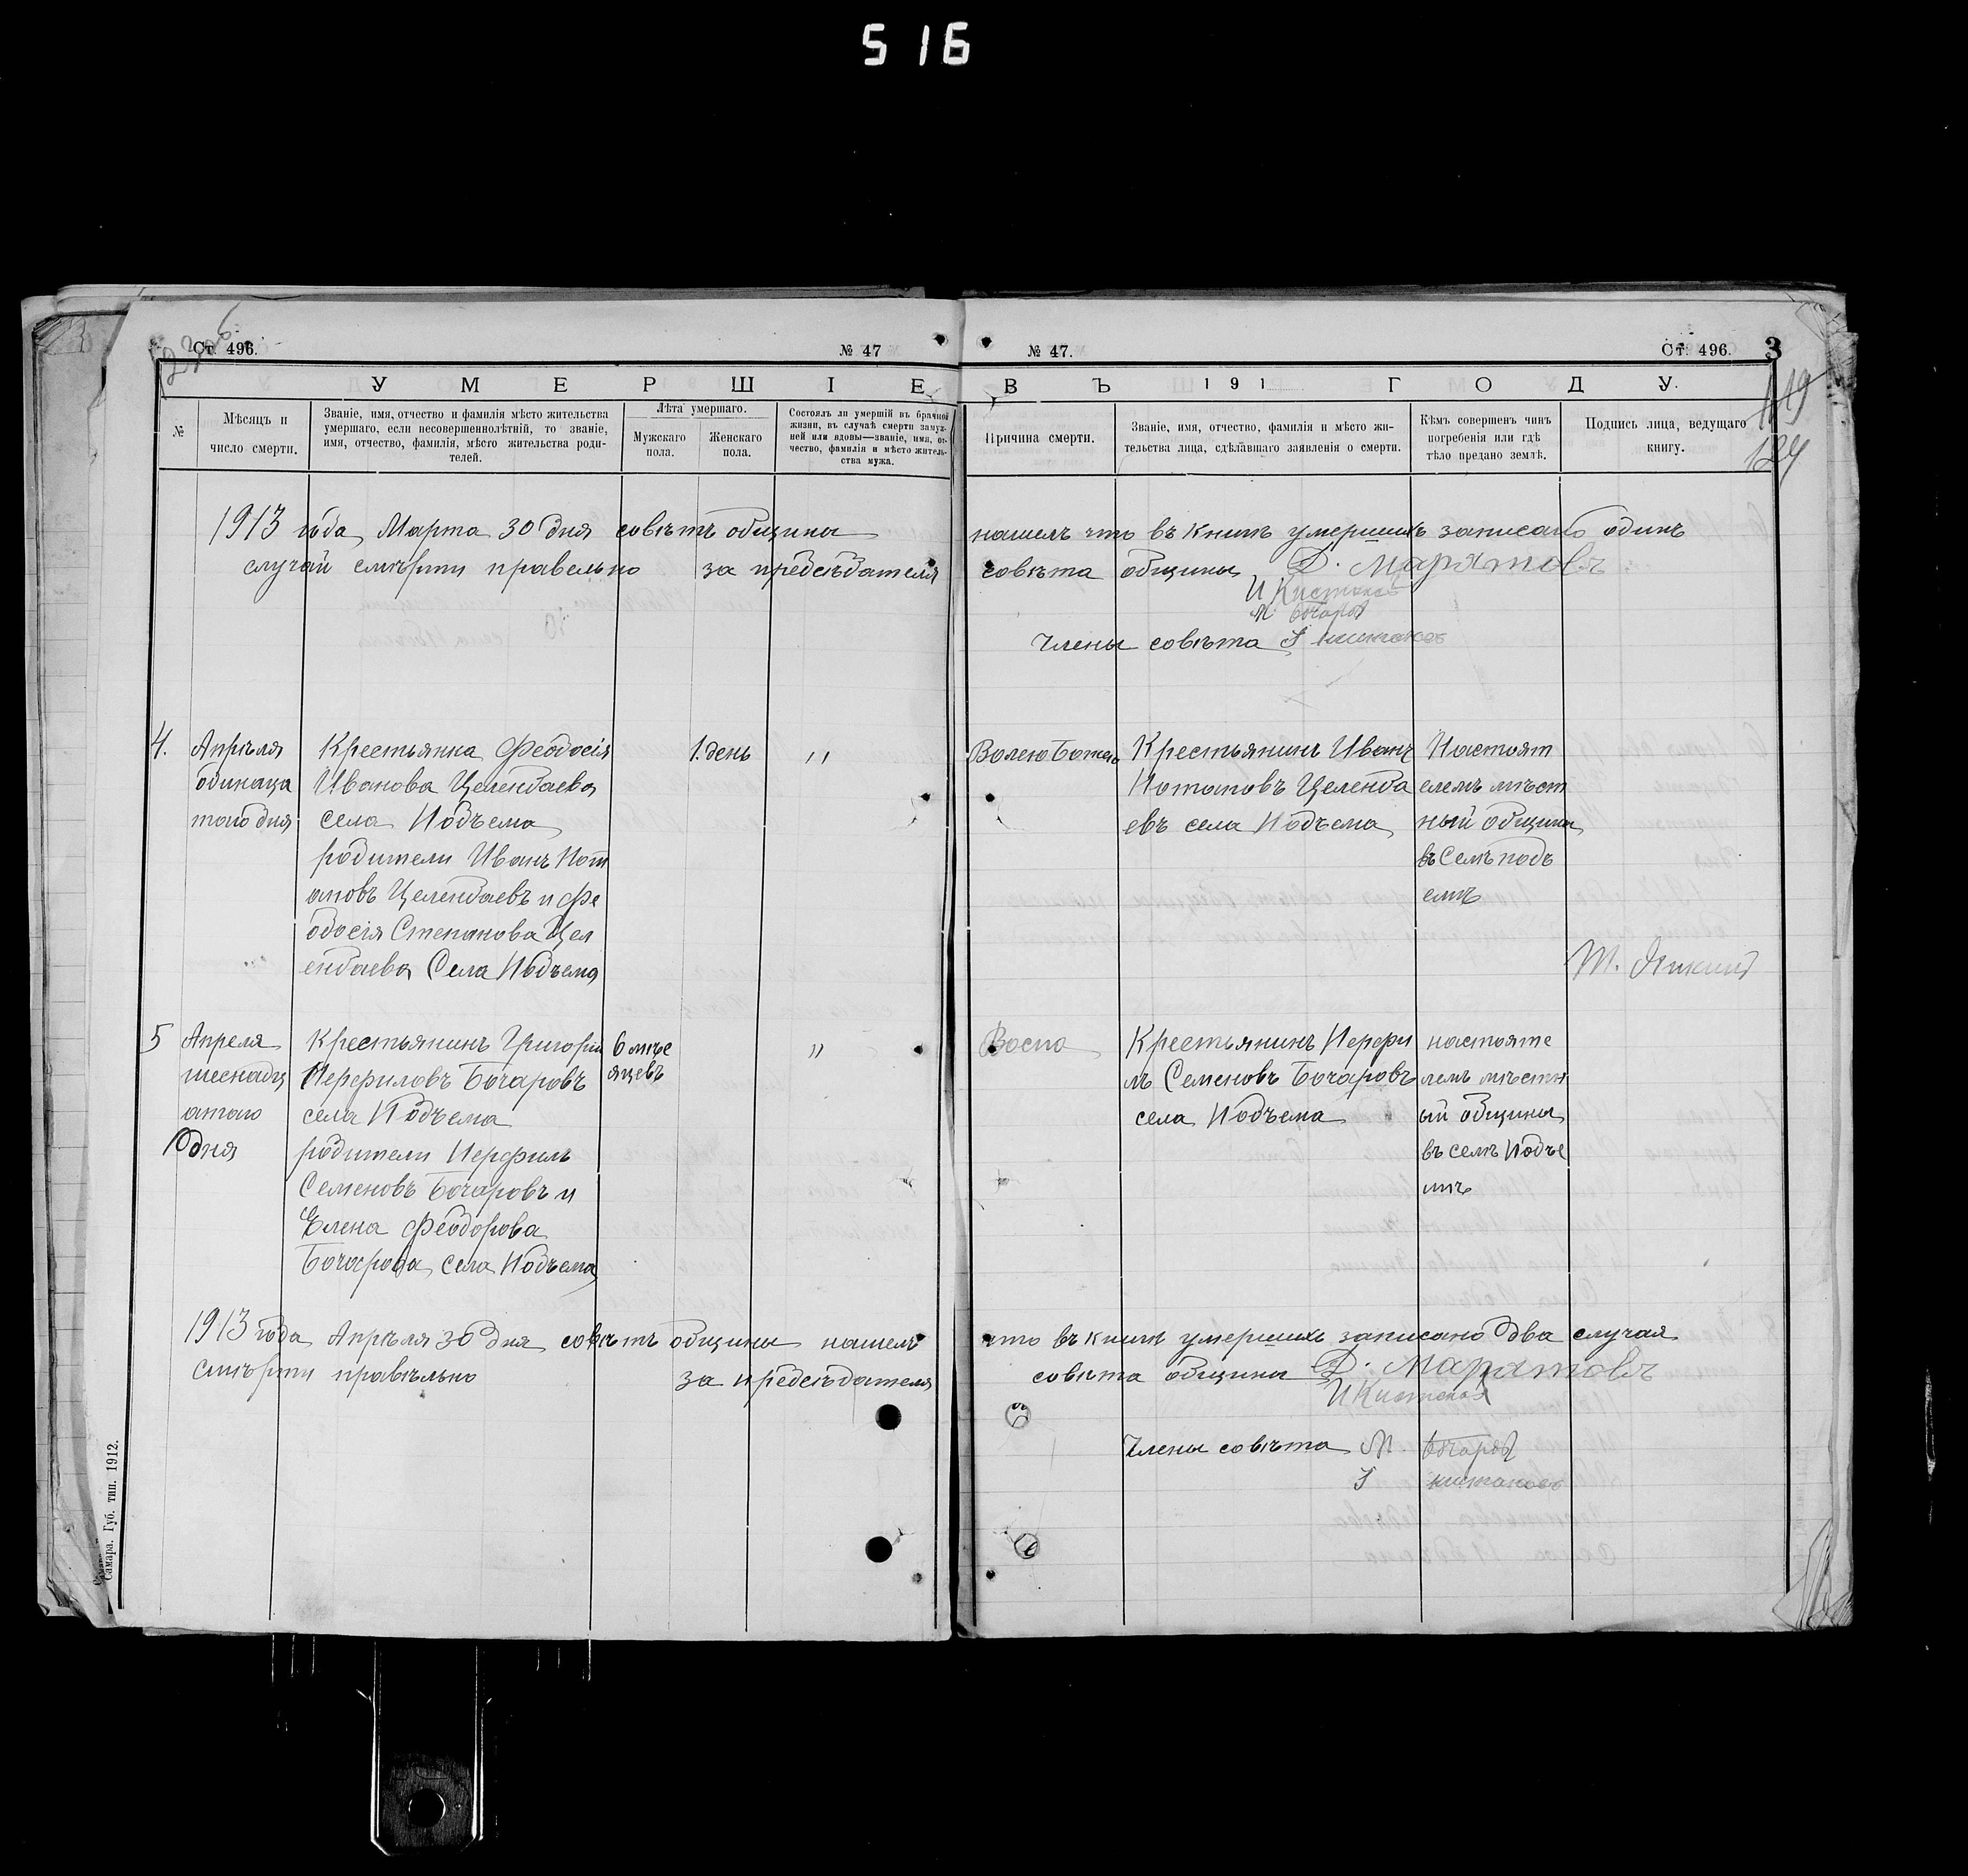 516
Ст. 496.
№ 47
№ 47.
Ст. 496.
3
119
124
УМЕРШІЕ
ВЪ 191 ГОДУ.
№
Мѣсяцъ и число смерти.
Званіе, имя, отчество и фамилія мѣсто жительства
умершаго, если несовершеннолѣтній, то званіе,
имя, отчество, фамилія, мѣсто жительства роди-
телей.
Лѣта умершаго.
Мужскаго пола.
Женскаго пола.
Состоялъ ли умершій въ брачной
жизни, въ случаѣ смерти замуж-
ней или вдовы—званіе, имя, от-
чество, фамилія и мѣсто житель-
ства мужа.
Причина смерти.
Званіе, имя, отчество, фамилія и мѣсто жи-
тельства лица, сдѣлавшаго заявленія о смерти.
Кѣмъ совершенъ чинъ
погребенія или гдѣ
тѣло предано землѣ.
Подпись лица, ведущаго
книгу.
1913 года Марта 30 дня совѣтъ общины нашелъ что въ книгѣ умершихъ записано одинъ
случай смѣрти правельно за предсѣдателя совѣта общины Д. Марятовъ
И Кистенев
М Бочаров
Члены совѣта
4.
Апрѣля
одинаца
таго дня
Крестьянка Феодосія
Иванова Целендаева
села Подъема
родители Иванъ Пот
аповъ Целендаевъ и Фе
одосія Степанова Цел
ендаева Села Подъема
1. день
"
Волею Божею
Крестьянинъ Иванъ
Потаповъ Целенда
евъ села Подъема
Настоят
елемъ мѣст
ный общины
въ Селѣ подъ
емѣ
5
Апреля
шеснадц
атаго
дня
Крестьянинъ Григорий
Перфиловъ Бочаровъ
села Подъема
родители Перфилъ
Семеновъ Бочаровъ и
Елена Феодорова
Бочарова села Подъема
6 мѣс
яцевъ
"
Воспа
Крестьянинъ Перфи
лъ Семеновъ Бочаровъ
села Подъема
настояте
лемъ мѣстн
ый общины
въ селѣ Подъе
мѣ
1913 года Апрѣля 30 дня совѣтъ общины нашелъ что въ книгѣ умершихъ записано два случая
смѣрти правѣльно за предсѣдателя совѣта общины Д. Марятовъ
И Кистенев
Члены совѣта М. Бочаров
Самара. Губ. тип. 1912.